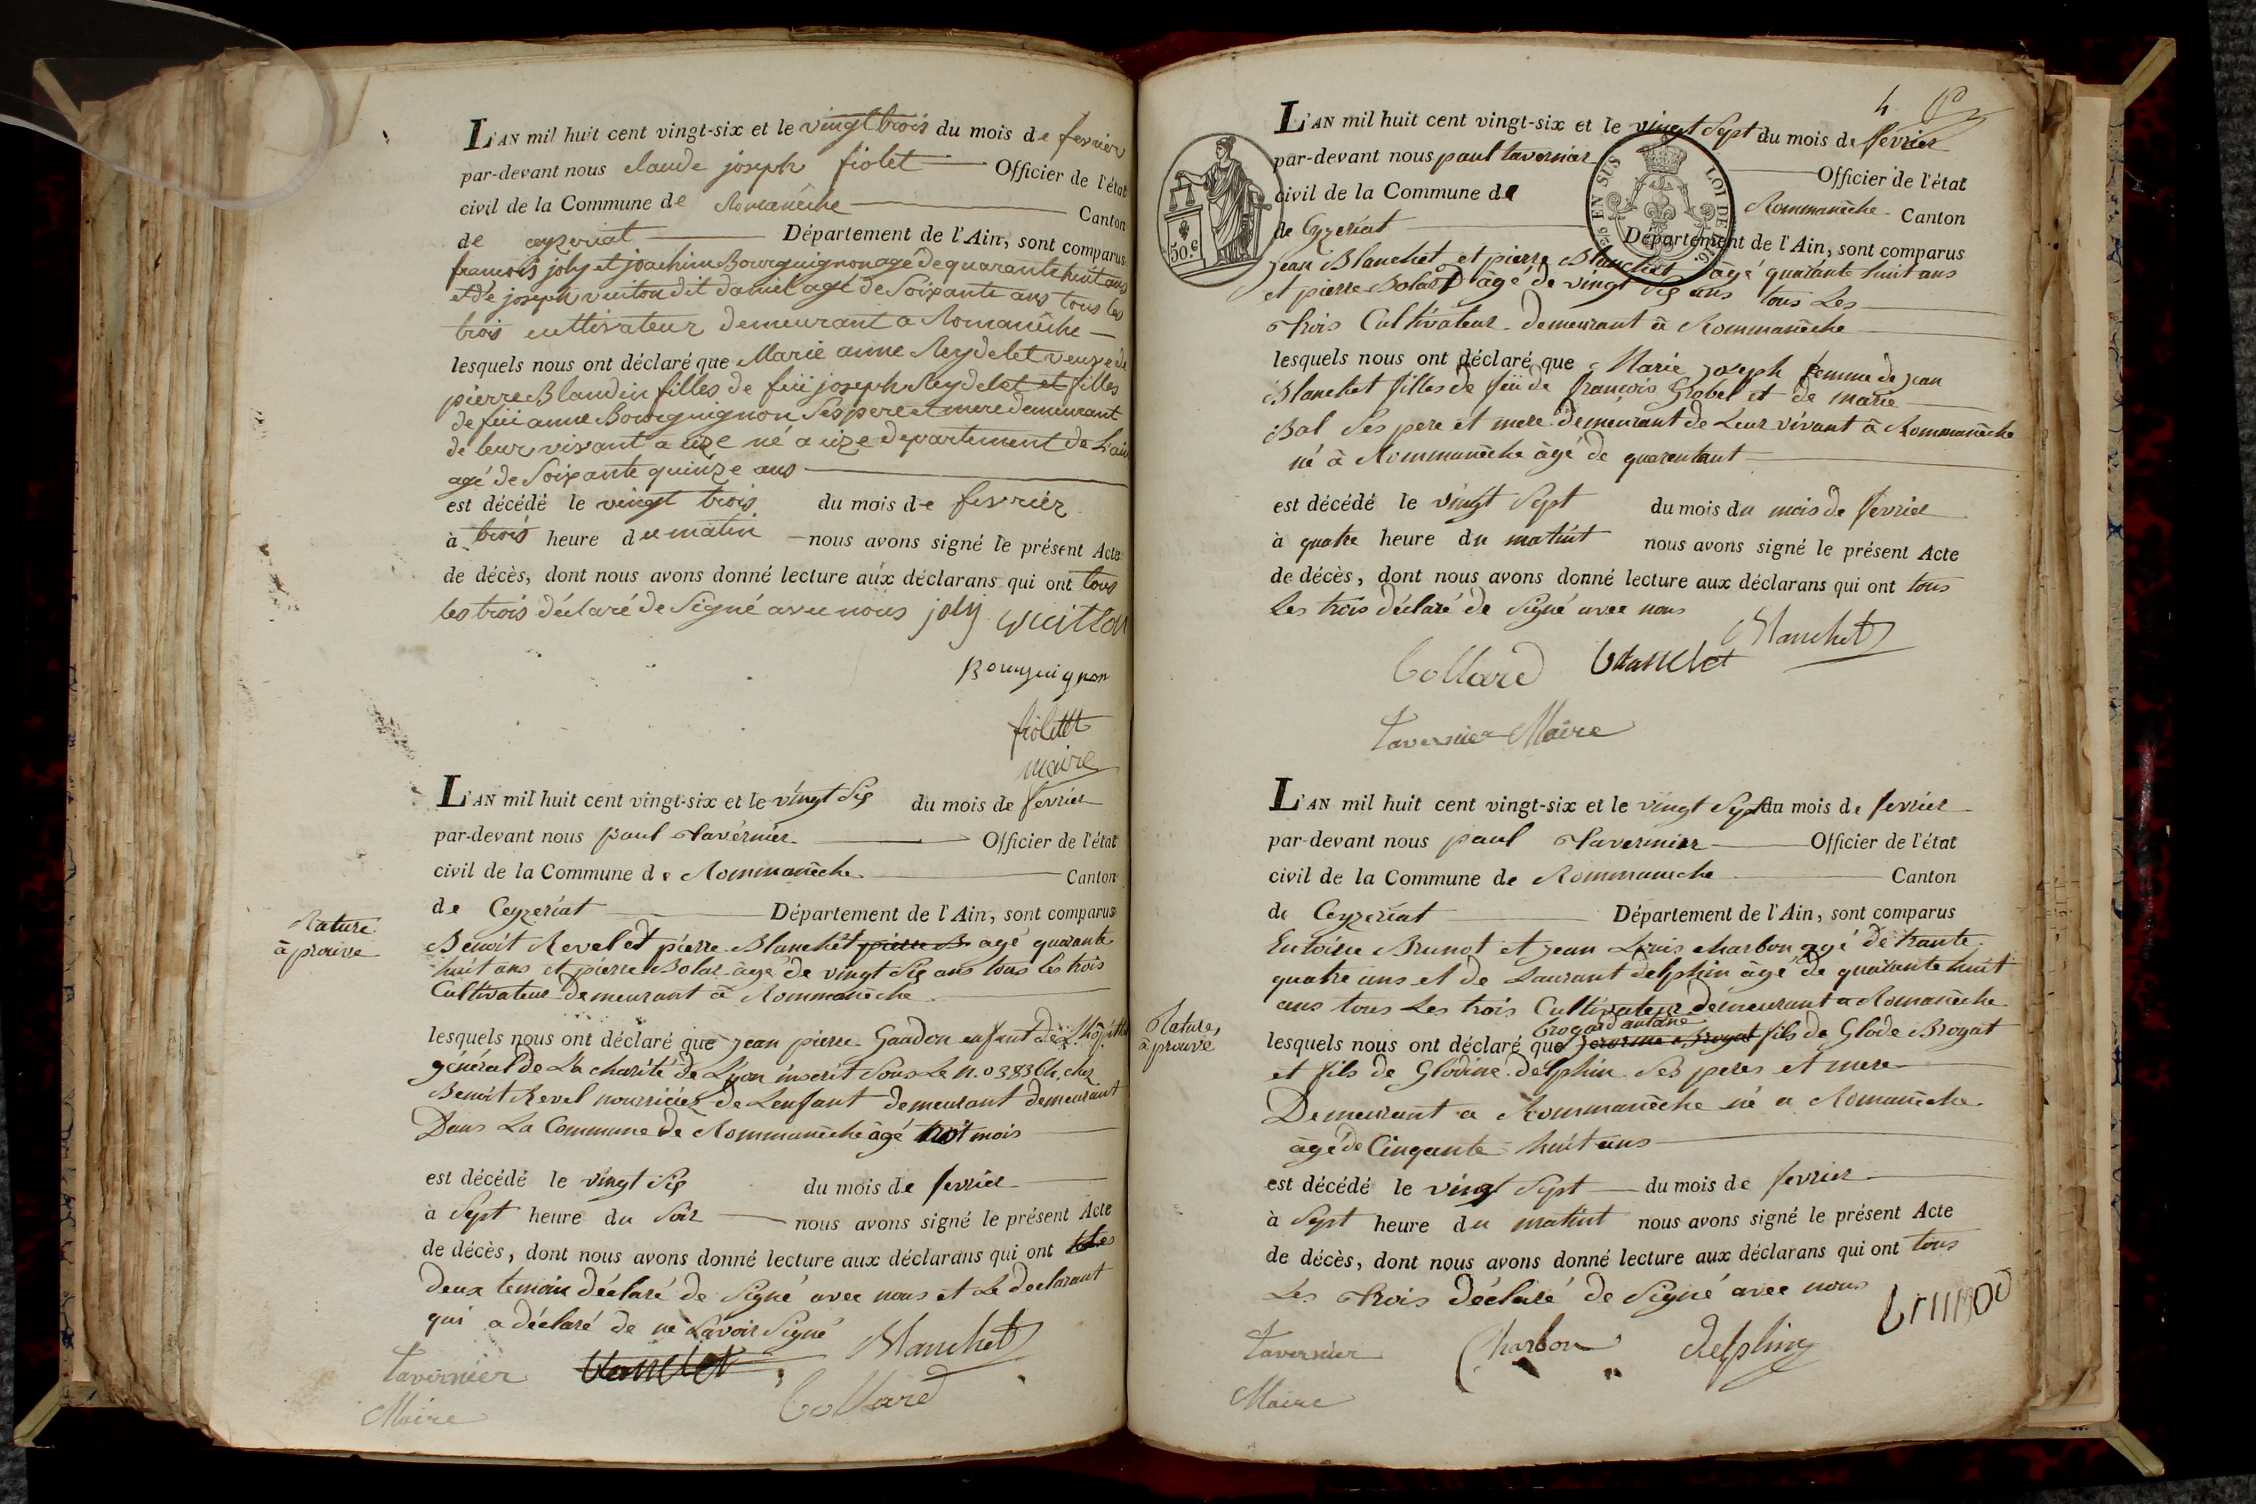 L'AN mil huit cent vingt-six et le vingt trois du mois de fevrier
par-devant nous claude joseph fiolet Officier de l'état
civil de la Commune de Romanêche Canton
de ceyzeriat Département de l'Ain, sont comparus
francois joly et joachim Bourguignon agé de quarante huit ans
et de joseph vuiton dit daniel agé de Soixante ans tous les
trois cultivateur demeurant a Romanêche
lesquels nous ont déclaré que Marie anne Reydelet veuve de
pierre Blandin filles de füü joseph Reydelet et filles
de füü anne Bourguignon Ses pere et mere demeurant
de leur vivant a uize né a uize departement de L'ain
agé de Soixante quinze ans
est décédé le veingt trois du mois de fevriér
à trois heure du matin nous avons signé le présent Acte
de décès, dont nous avons donné lecture aux déclarans qui ont tous
les trois déclaré de Signé avec nous joly vuitton
Bourguignon
fiolet
maire
L'AN mil huit cent vingt-six et le vingt Six du mois de fevrier
par-devant nous paul Tavérnier Officier de l'état
civil de la Commune de Rommanêche Canton
de Ceyzeriat Département de l'Ain, sont comparus
Benoit Revel et pierre Blanchet pierre B agé quarante
huit ans et pierre Bolar âgé de vingt Six ans tous les trois
Cultivateur demeurant à Rommanêche
Rature
àprouve
lesquels nous ont déclaré que jean pierre Gaudon enfant de L'hôpital
général de La charité de Lyon inscrit Sous Le n.o 383 Ch. chez
Benoit Revel nourricier de Lenfant demeurant demeurant
Dans La Commune de Rommanêche âgé mois
est décédé le vingt Six du mois de fevrier
à Sept heure du Soir nous avons signé le présent Acte
de décès, dont nous avons donné lecture aux déclarans qui ont Les
deux temoin déclaré de Signé avec nous et Le declarant
qui a déclaré de ne Lavoir Signé Blanchet
Tavernier
Collard
Maire
4
L'AN mil huit cent vingt-six et le vingt Sept du mois de fevrier
par-devant nous paul tavernier Officier de l'état
civil de la Commune de Rommanêche Canton
de Ceyzeriat Département de l'Ain, sont comparus
50.c
EN SUS LOI DE 1816.
jean Blanchet et pierre Blanchet âgé quarante huit ans
et pierre Bolard âgé de vingt Six ans tous Les
Trois Cultivateur demeurant à Rommanêche
lesquels nous ont déclaré que Marie joseph femme de jean
Blanchet filles de füü de françois Grobel et de marie
Bal Ses pere et mere demeurant de Leur vivant à Rommanêche
né à Rommanêche âgé de quarentant
est décédé le vingt Sept du mois du mois de fevrier
à quatre heure du matint nous avons signé le présent Acte
de décès, dont nous avons donné lecture aux déclarans qui ont tous
Les trois déclaré de Signé avec nous
Blanchet
Collard Blanchet
Tavernier Maire
L'AN mil huit cent vingt-six et le vingt Sept du mois de fevrier
par-devant nous paul Tavernier Officier de l'état
civil de la Commune de Rommaneche Canton
de Ceyzeriat Département de l'Ain, sont comparus
Entoine Brunot et jean Louis charbon agé de trante
quatre ans et de Laurant delphin âgé de quarante huit
ans tous Les trois Cultivateur demeurant a Romanêche
Rature,
àprouvé
brogard antane
lesquels nous ont déclaré que Brogat fils de Glode Brogat
et fils de Glodine delphin Ses peres et mere
Demeurant a Rommanêche né a Romanêche
âgé de Cinquante huit ans
est décédé le vingt Sept du mois de fevrier
à Sept heure du matint nous avons signé le présent Acte
de décès, dont nous avons donné lecture aux déclarans qui ont tous
Les Trois déclaré de Signé avec nous
Tavernier Charbon delphin
Maire